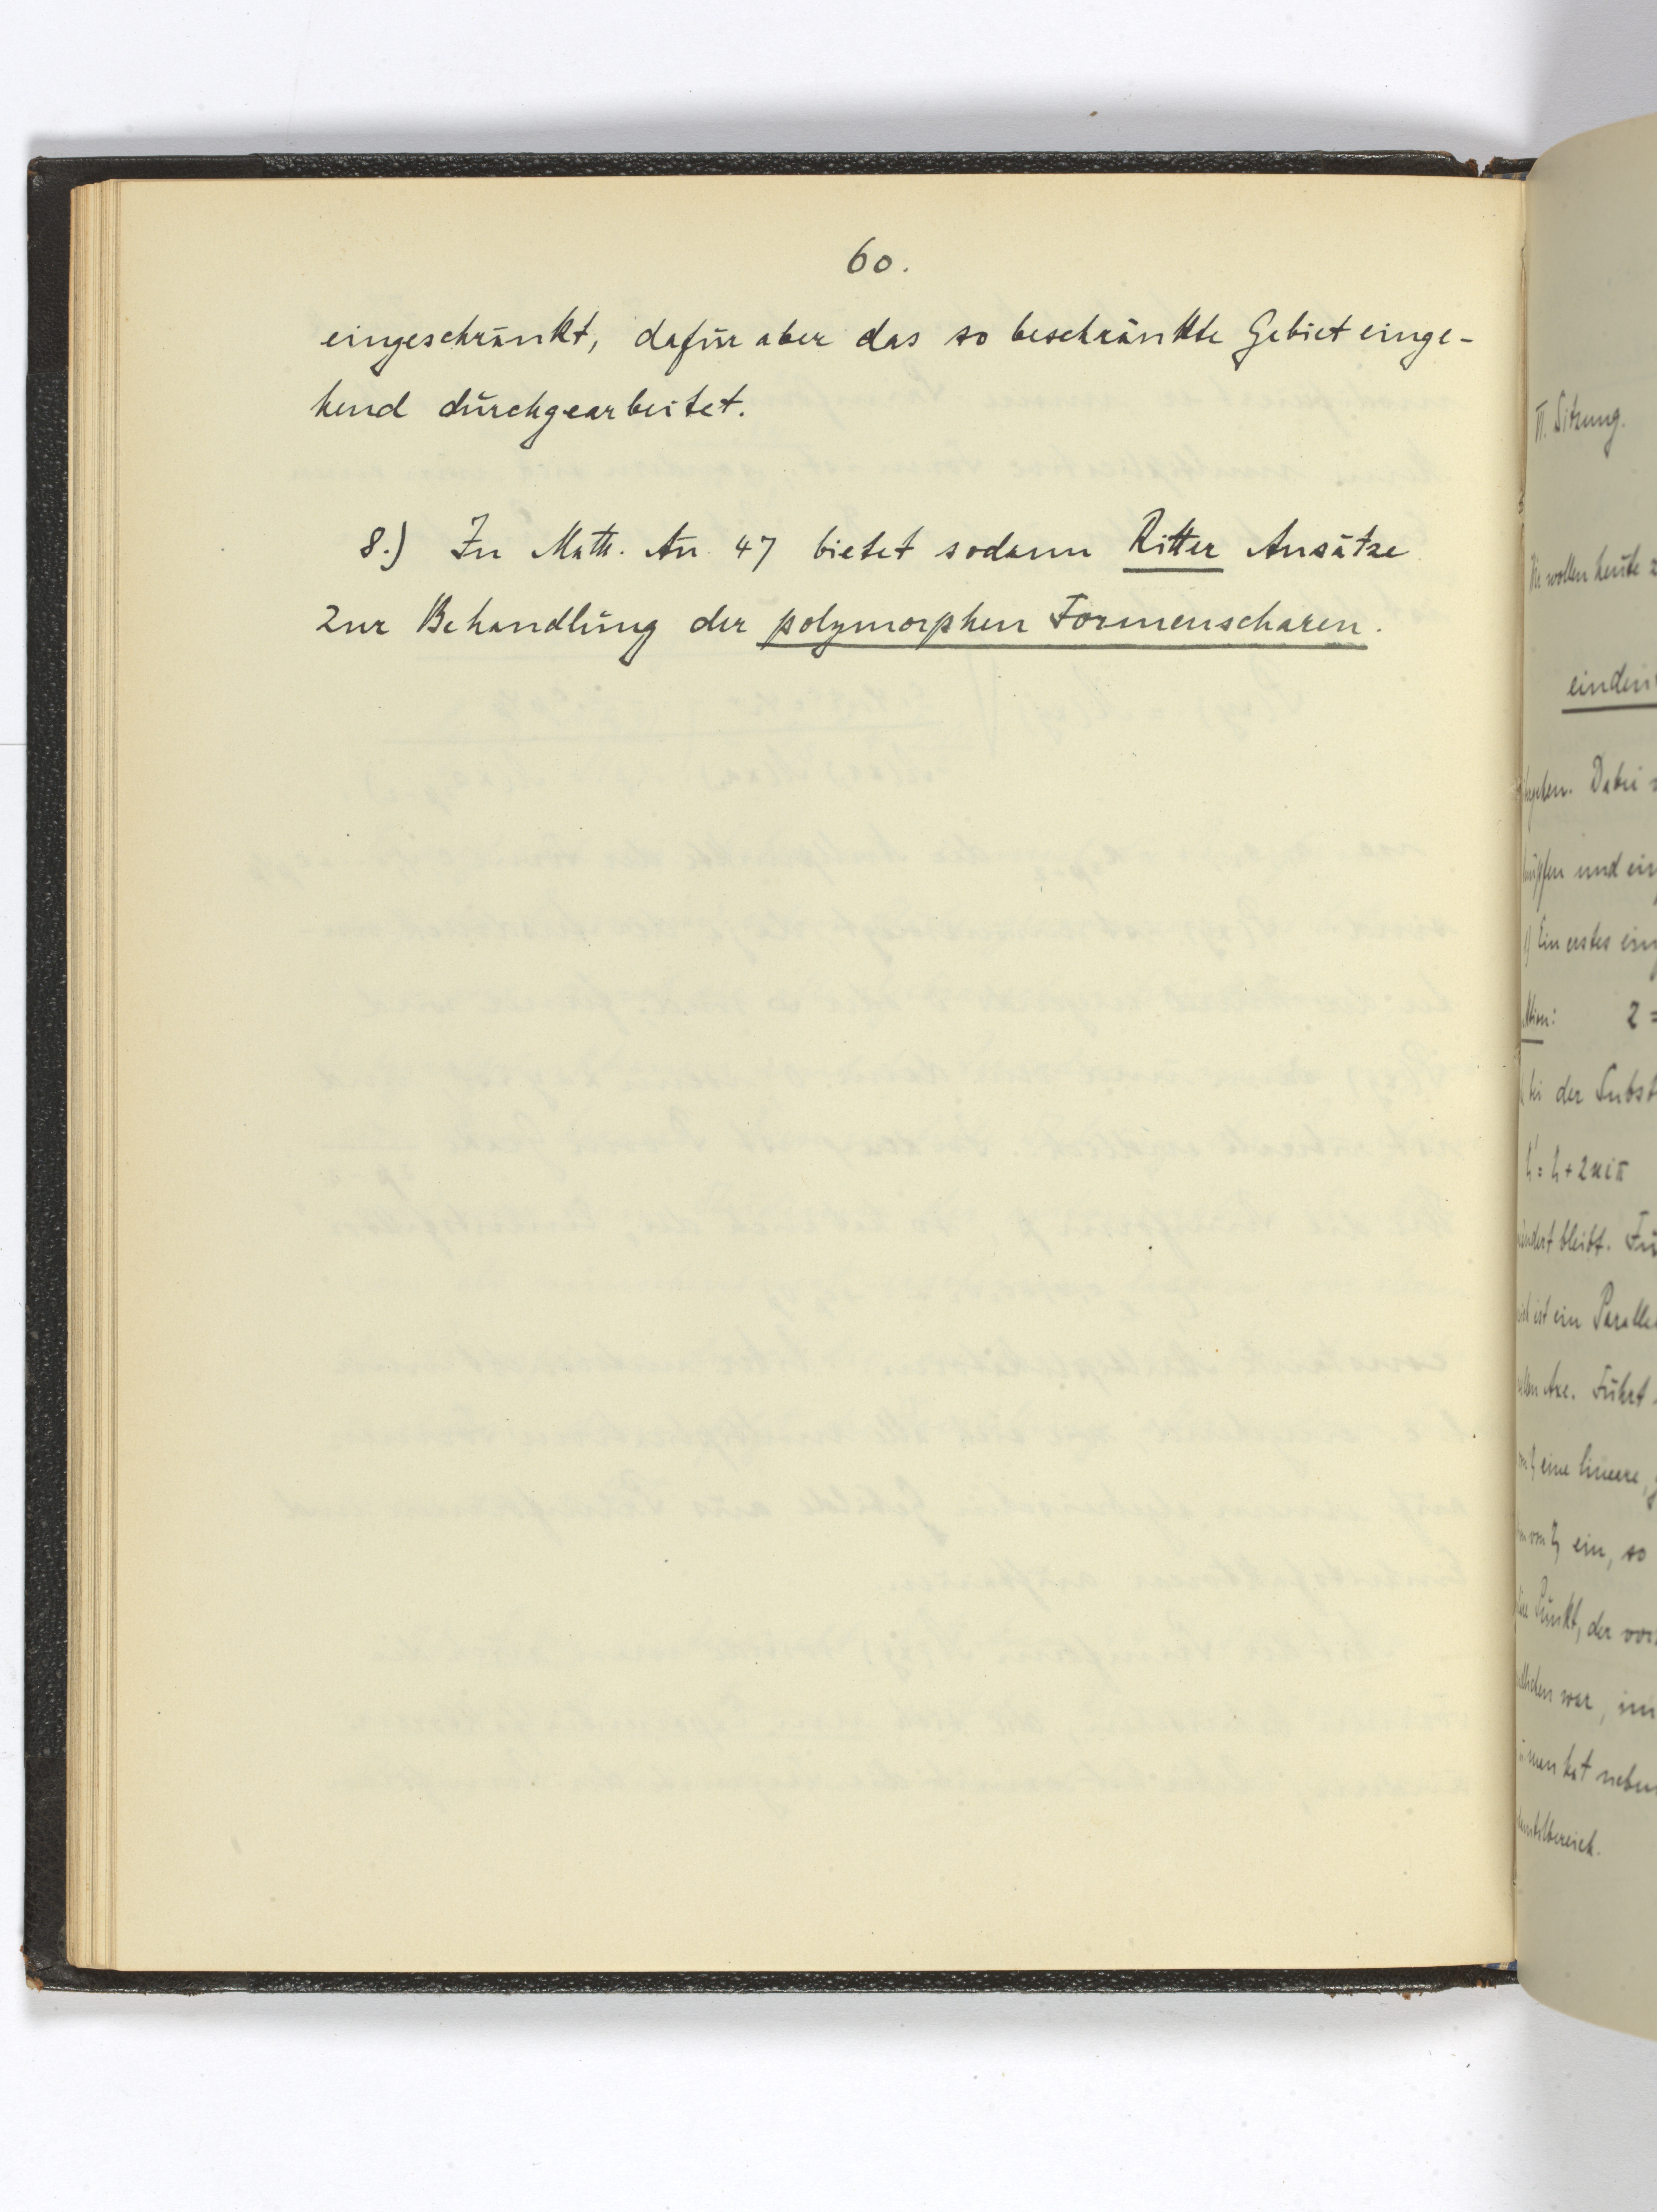 60.
eingeschränkt, dafür aber das so beschränkte Gebiet einge-
hend durchgearbeitet.
8.) In Math. An. 47 bietet sodann Ritter Ansätze
zur Behandlung der polymorphen Formenscharen.
II. Sitzung.
wollen heute
eindeu
geben. Dabei
und ein
Ein erstes
z =
bei der Subst
+ 2πiπ
bleibt. Fü
ist ein Paralle
Axe. Führt
eine lineare,
ein, so
Punkt, der vor
war, im
man hat neben
bereich.